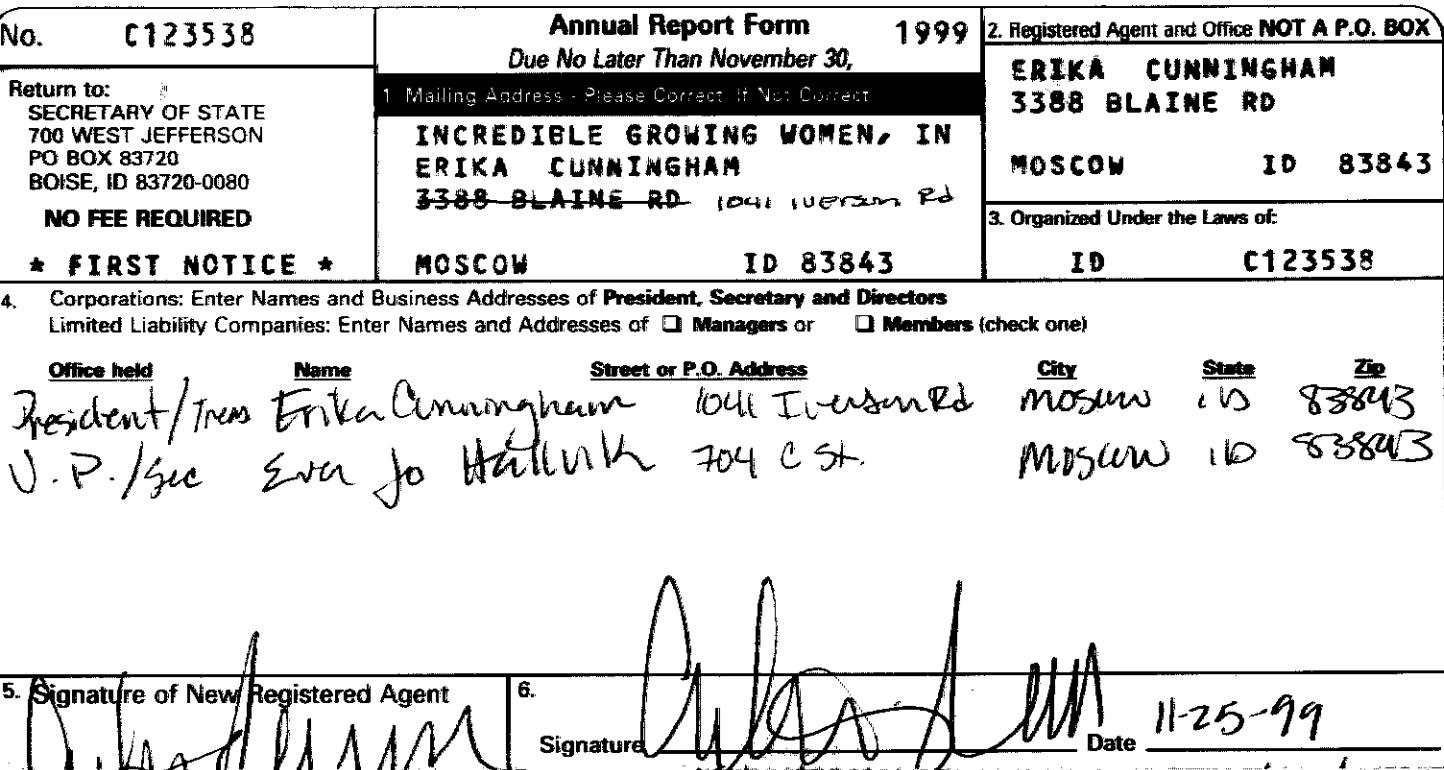 No. C123538
Return to:
SECRETARY OF STATE
700 WEST JEFFERSON
PO BOX 83720
BOISE, ID 83720-0080
NO FEE REQUIRED
* FIRST NOTICE *
Annual Report Form 1999
Due No Later Than November 30,
1 Mailing Address - Please Correct If Not Correct
INCREDIBLE GROWING WOMEN, IN
ERIKA CUNNINGHAM
3388 BLAINE RD 1041 Iverson Rd
MOSCOW ID 83843
2. Registered Agent and Office NOT A P.O. BOX
ERIKA CUNNINGHAM
3388 BLAINE RD
MOSCOW ID 83843
3. Organized Under the Laws of:
ID C123538
4. Corporations: Enter Names and Business Addresses of President, Secretary and Directors
Limited Liability Companies: Enter Names and Addresses of ❑ Managers or ❑ Members (check one)
Office held Name Street or P.O. Address City State Zip
President/Treas Erika Cunningham 1041 Iverson Rd Moscow ID 83843
V.P./Sec Eva Jo Hallvik 704 C St. Moscow ID 83843
5. Signature of New Registered Agent
6.
Signature Date 11-25-99